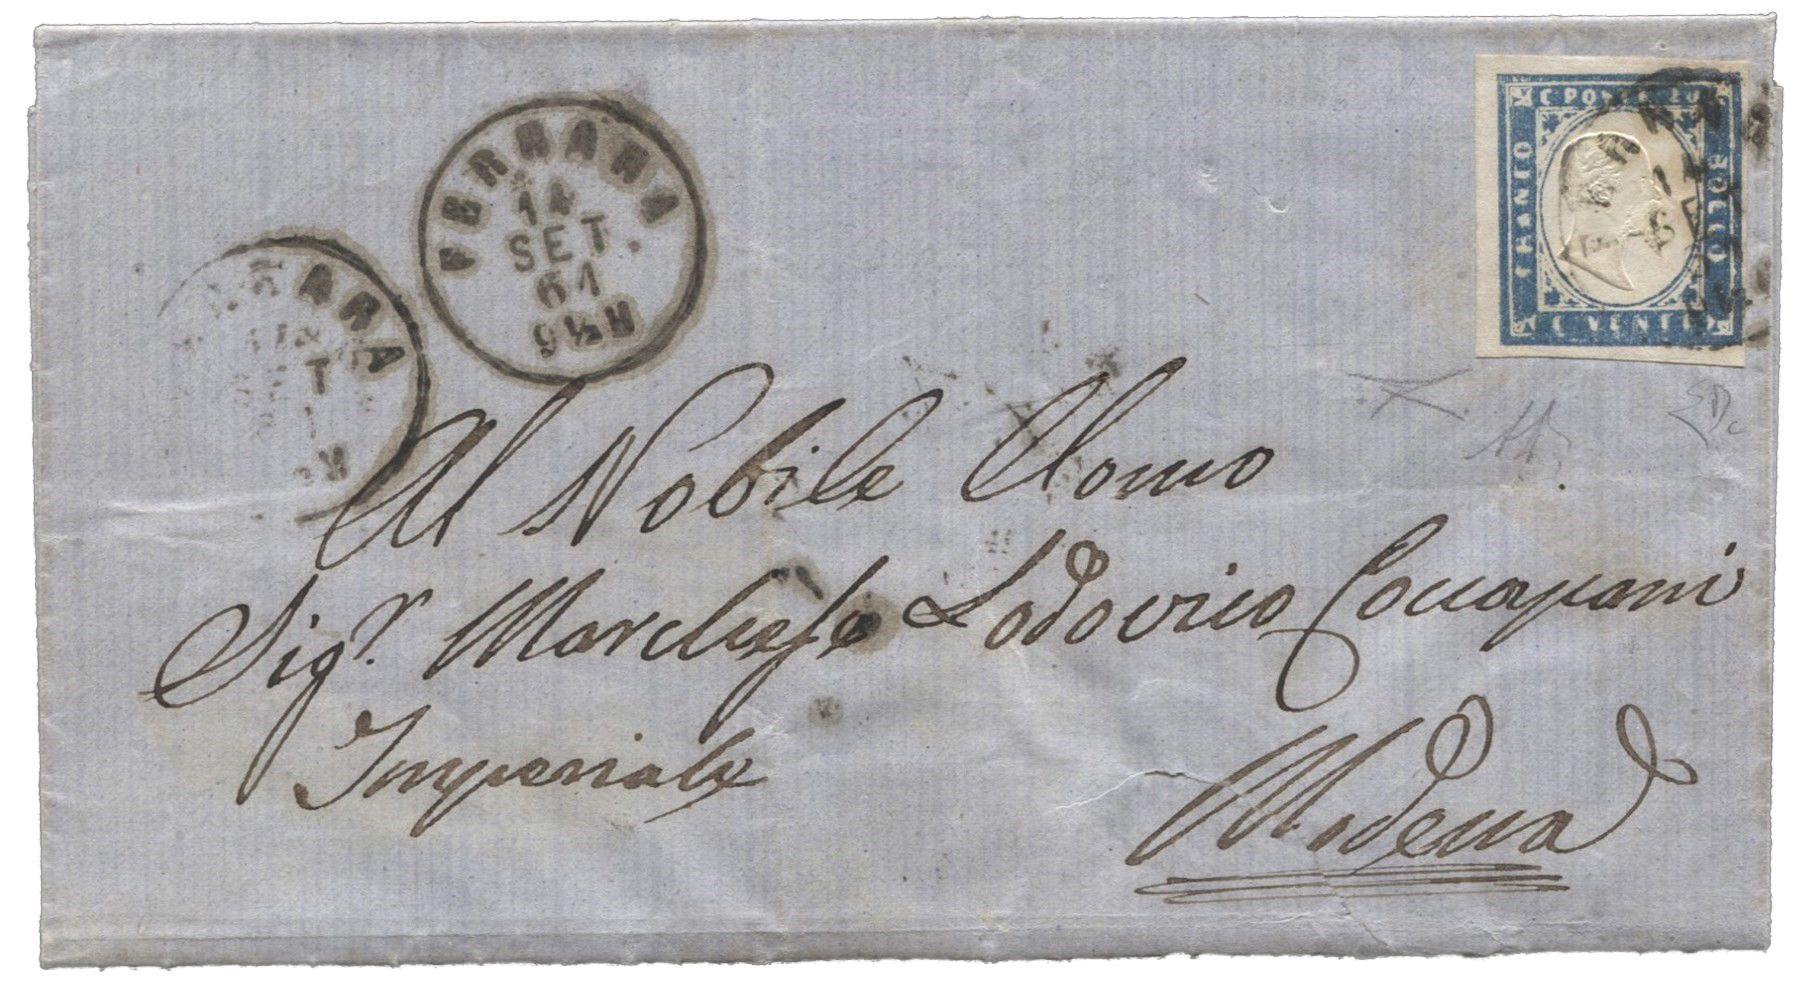 FERRARA
14
SET
61
9½M
ARA
T
M
C POSTE 20
FRANCO
BOLLO
C VENTI
Al Nobile Uomo
Sigr. Marchese Lodovico Coccapani
Imperiale
Modena